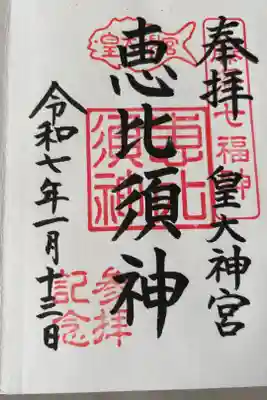 奉拝
七福神
皇大神宮
皇大神宮
恵比須神
恵比須神
令和七年一月十三日
参拝
記念